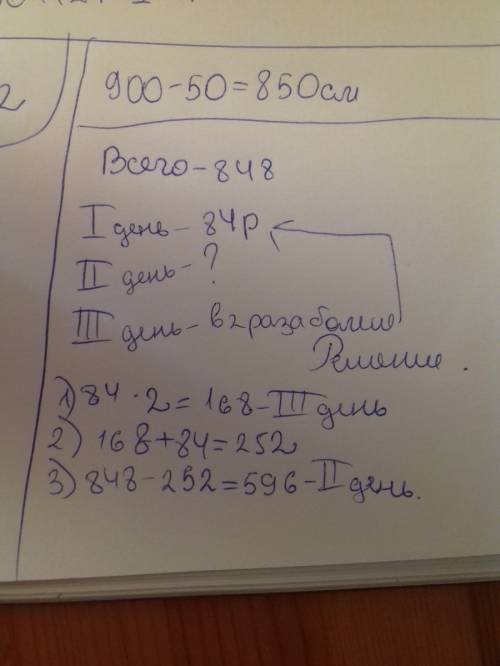 2
900-50=850см
Всего-848
I день-84р
II день-?
III день-в 2 раза более
Решение.
1) 84·2=168-III день
2) 168+84=252
3) 848-252=596-II день.